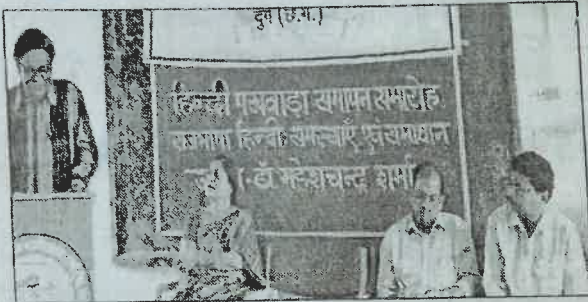 दुर्ग (छ.ग.)
हिन्दी पखवाड़ा समापन समारोह
हिन्दी समस्याएँ एवं समाधान
डॉ. महेशचन्द्र शर्मा